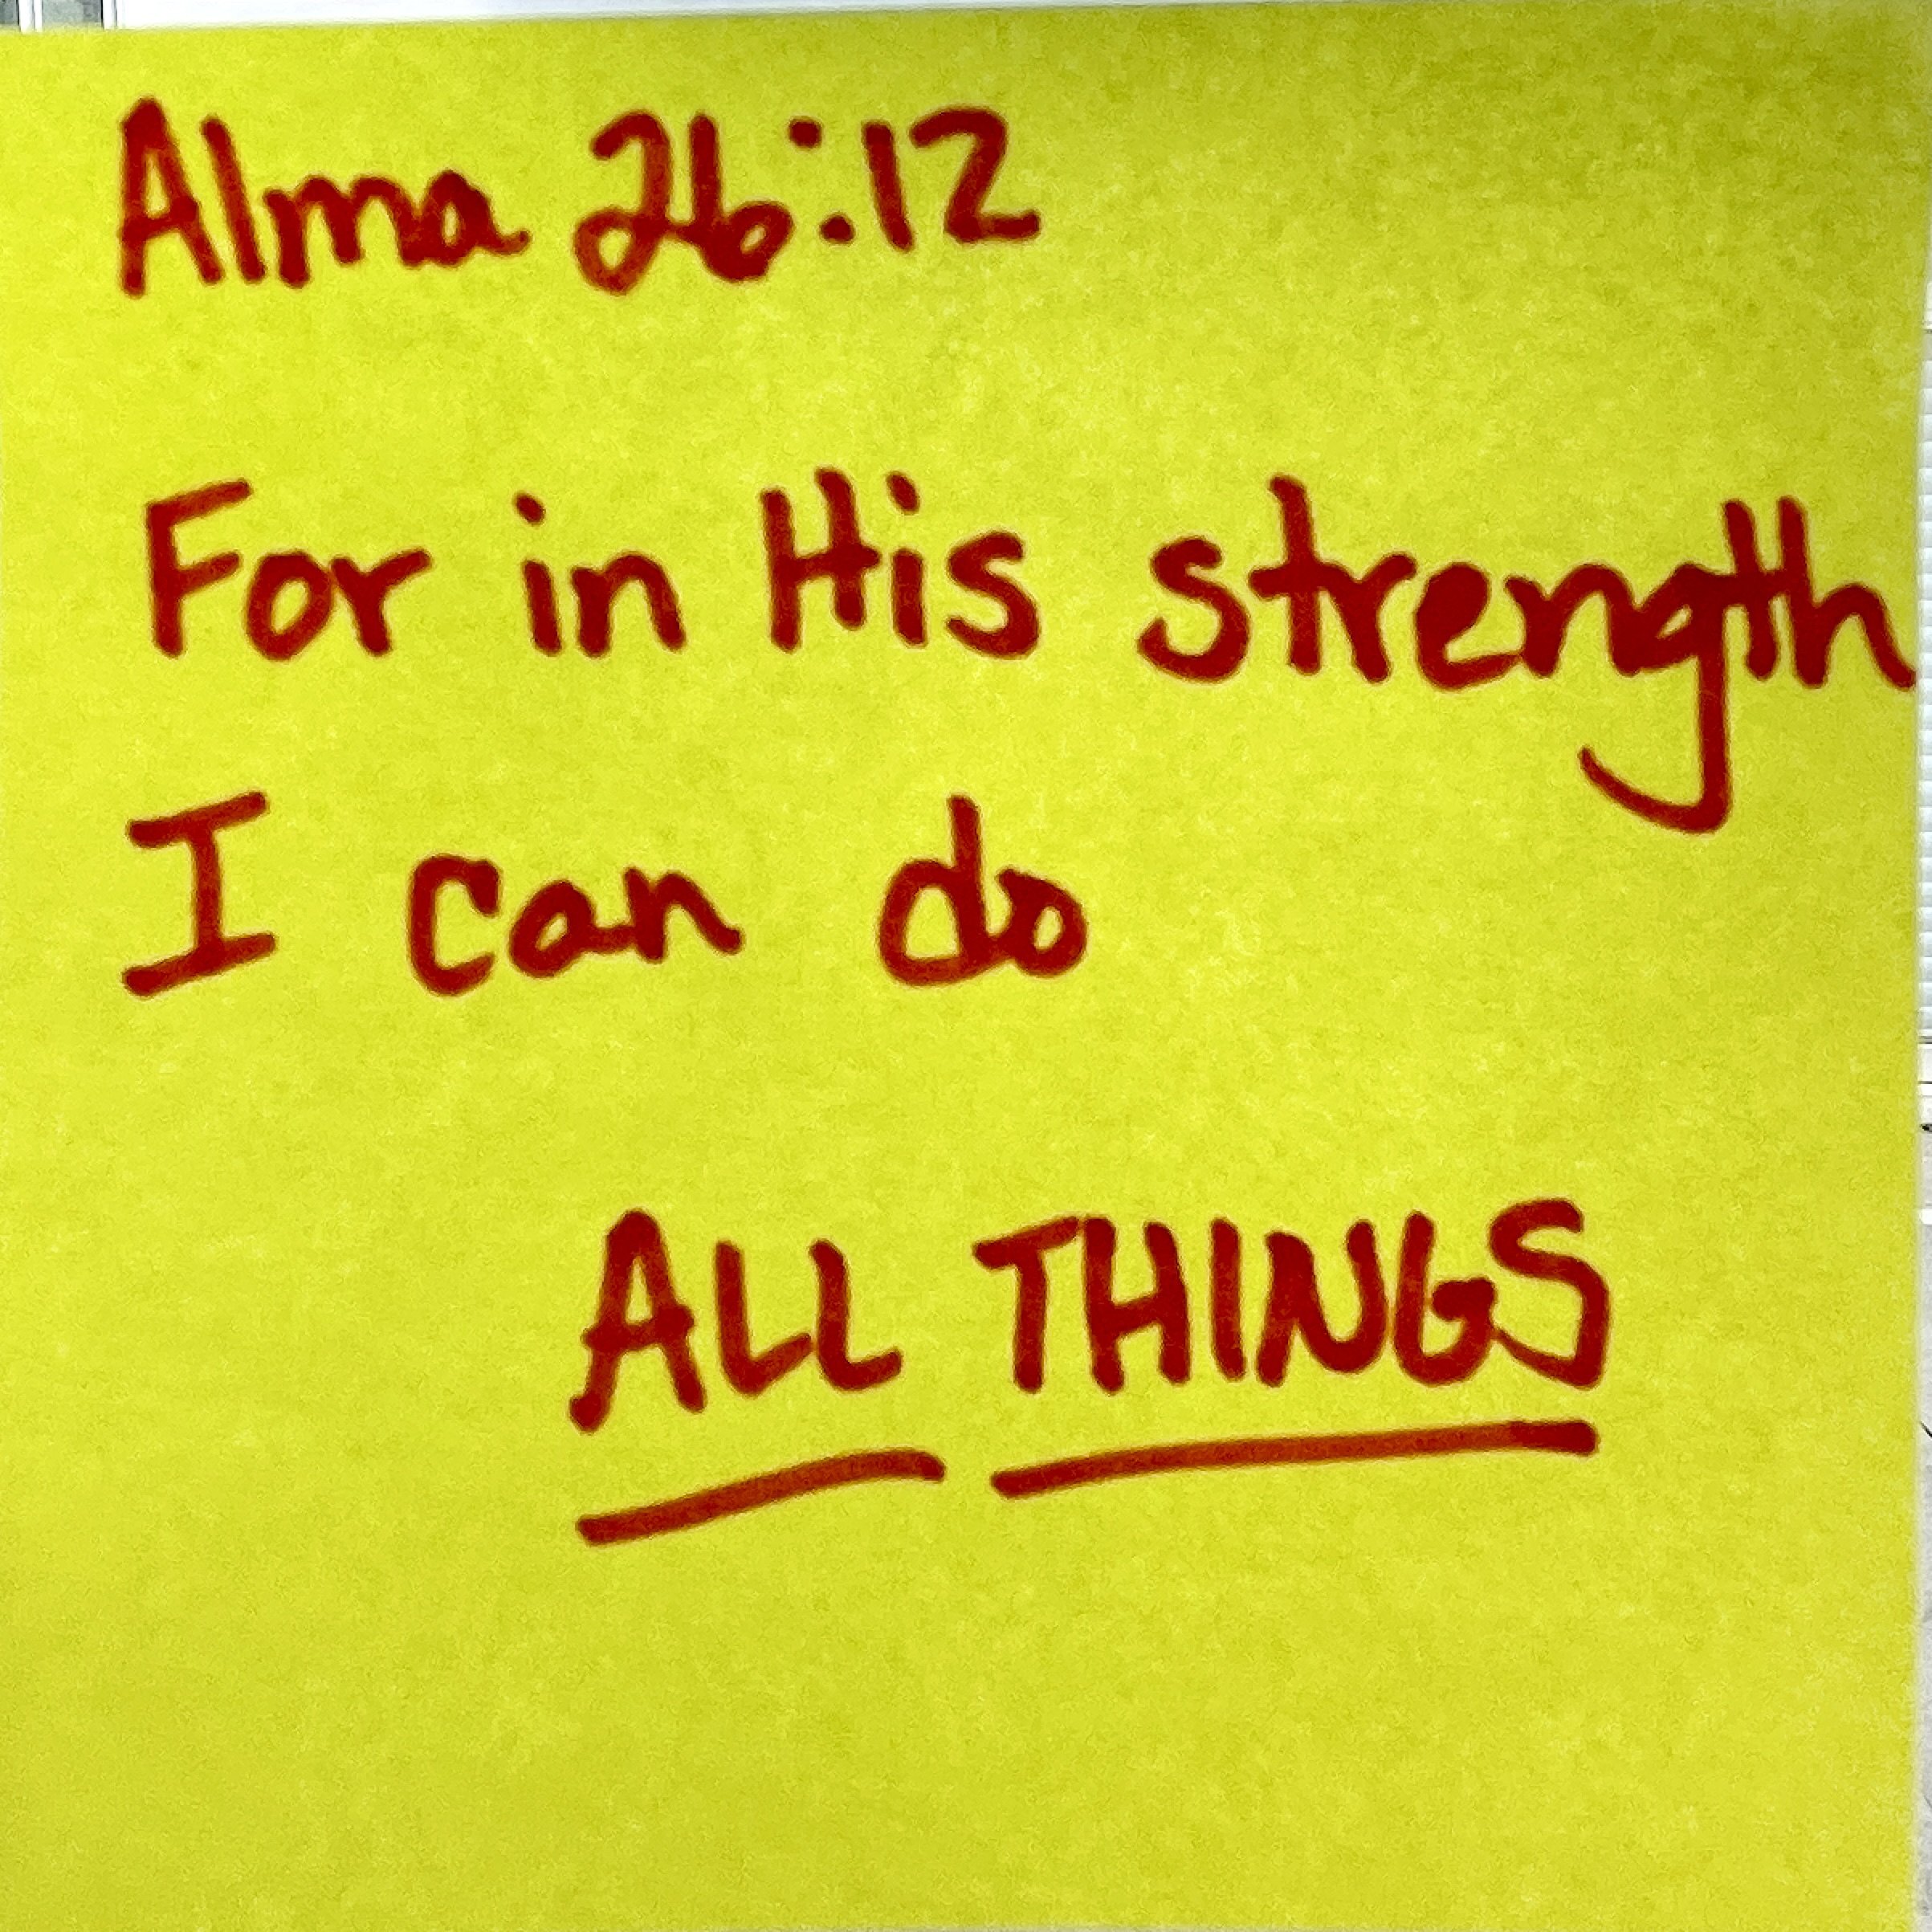 Alma 26:12
For in His strength
I can do
ALL THINGS